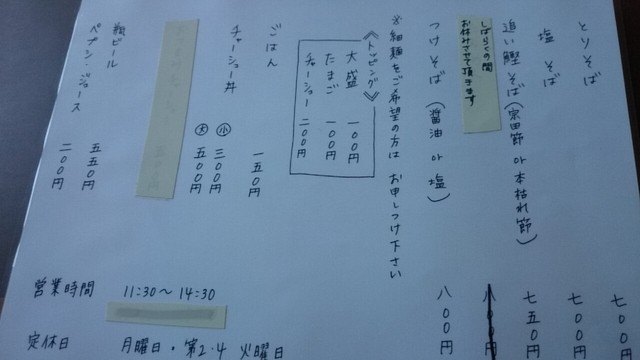 とりそば 七〇〇円
塩そば 七〇〇円
追い鰹そば(宗田節or本枯れ節) 七五〇円
しばらくの間
お休みさせて頂きます
八〇〇円
つけそば(醤油or塩) 八〇〇円
※細麺をご希望の方はお申しつけ下さい
《トッピング》
大盛 一〇〇円
たまご 一〇〇円
チャーシュー 二〇〇円
ごはん 一五〇円
チャーシュー丼 小 三〇〇円
大 五〇〇円
瓶ビール 五五〇円
ペプシ・ジュース 二〇〇円
営業時間 11:30〜14:30
定休日 月曜日・第2.4 火曜日